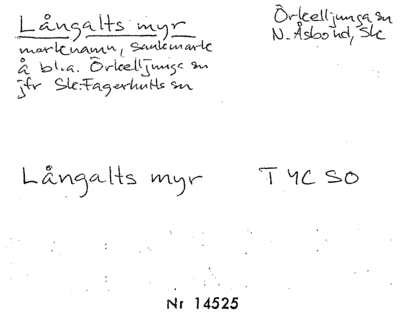 Långalts myr
marknamn, sankmark
å bl.a. Örkelljunga sn
jfr Sk: Fagerhults sn
Örkelljunga sn
N. Åsbo hd, Sk
Långalts myr
T 4C SO
Nr 14525